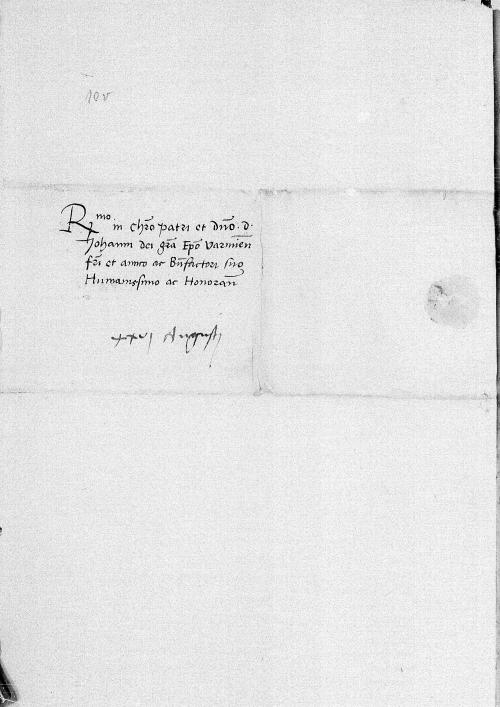 10v
R mo in Chr̄o patri et dn̄o. d.
Johanni dei grā Ep̄o Varmien̄
fr̄i et amico ac Bn̄factori suo
Humanissimo ac Honoran̄
xxvj Augusti